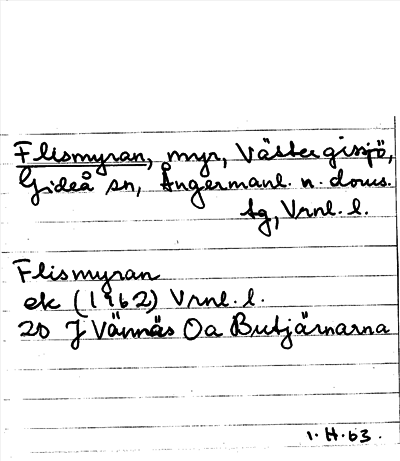 Flismyran, myr, Västergissjö,
Gideå sn, Ångermanl. n. doms.
tg, Vrnl. l.
Flismyran
ek (1962) Vrnl. l.
20 J Vännäs Oa Butjärnarna
1.4.63.